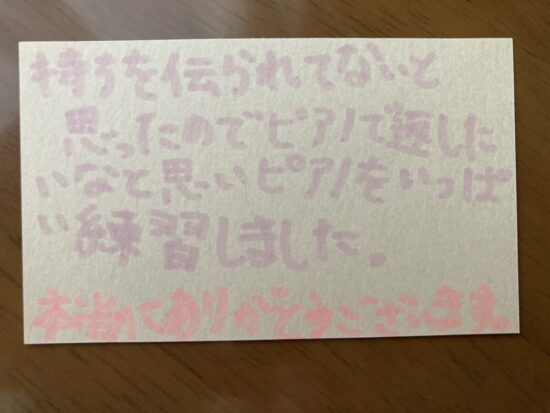 持ちを伝られてないと
思ったのでピアノで返した
いなと思いピアノをいっぱ
い練習しました。
本当にありがとうございます。